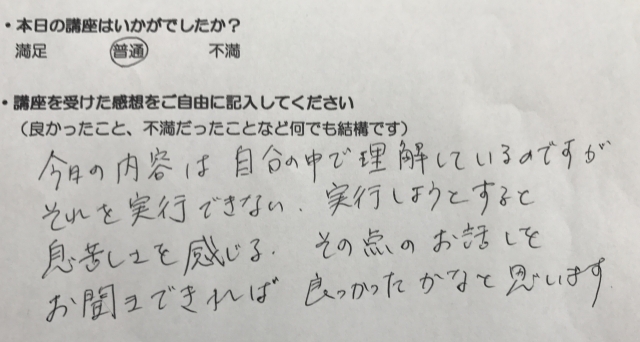 ・本日の講座はいかがでしたか？
満足　普通　不満
・講座を受けた感想をご自由に記入してください
（良かったこと、不満だったことなど何でも結構です）
今日の内容は自分の中で理解しているのですが
それを実行できない．実行しようとすると
息苦しさを感じる．その点のお話しを
お聞きできれば良っかったかなと思います